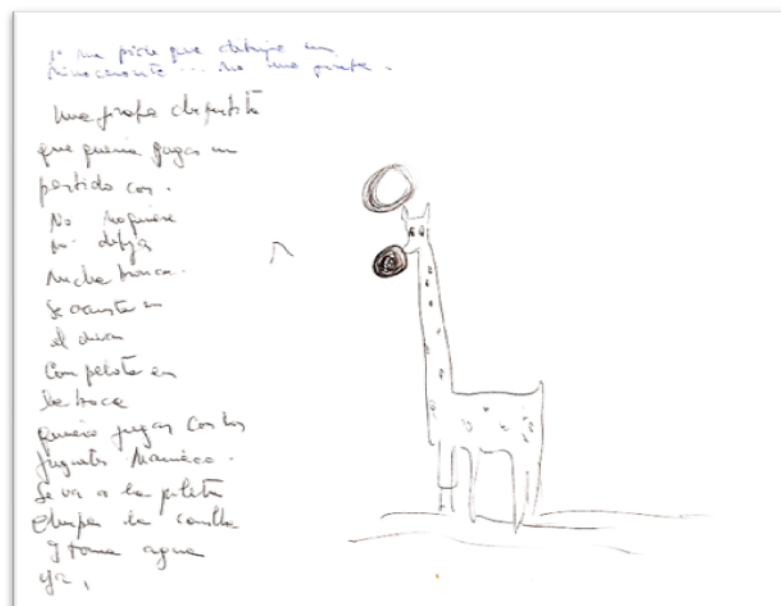 me pide que dibuje un
rinoceronte ... no una jirafa.
Una jirafa deportista
que quería jugar un
partido con.
No
dibuja
Mucha bronca.
Se acuesta en
el divan
Con pelota en
la boca
quiero jugar con los
juguetes
Se va a la pileta
chupa la canilla
y toma agua
ya,